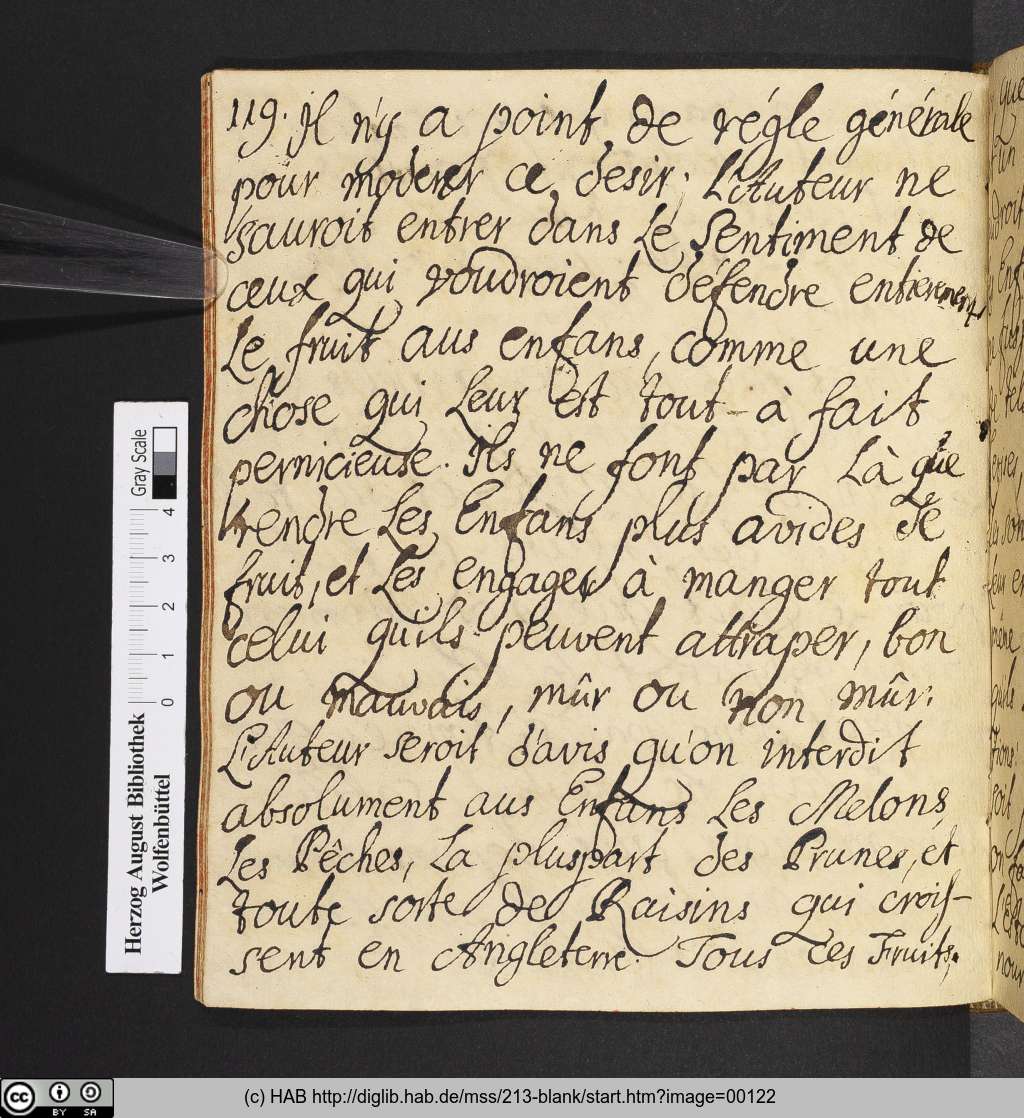 119. Il n'y a point de régle générale
pour moderer ce desir. L'Auteur ne
sauroit entrer dans Le Sentiment de
ceux qui voudroient défendre entierement
Le fruit aus enfans, comme une
chose qui Leur est tout-à fait
pernicieuse. Ils ne font par Là que
rendre Les Enfans plus avides de
fruit, et Les engager à manger tout
celui qu'ils peuvent attraper, bon
ou mauvais, mûr ou non mûr.
L'Auteur seroit d'avis qu'on interdit
absolument aus Enfans Les Melons,
Les Pêches, La pluspart des Prunes, et
toute sorte de Raisins qui crois-
sent en Angleterre. Tous ces Fruits,
Herzog August Bibliothek
Wolfenbüttel
Gray Scale
0 1 2 3 4
cc BY SA
(c) HAB http://diglib.hab.de/mss/213-blank/start.htm?image=00122